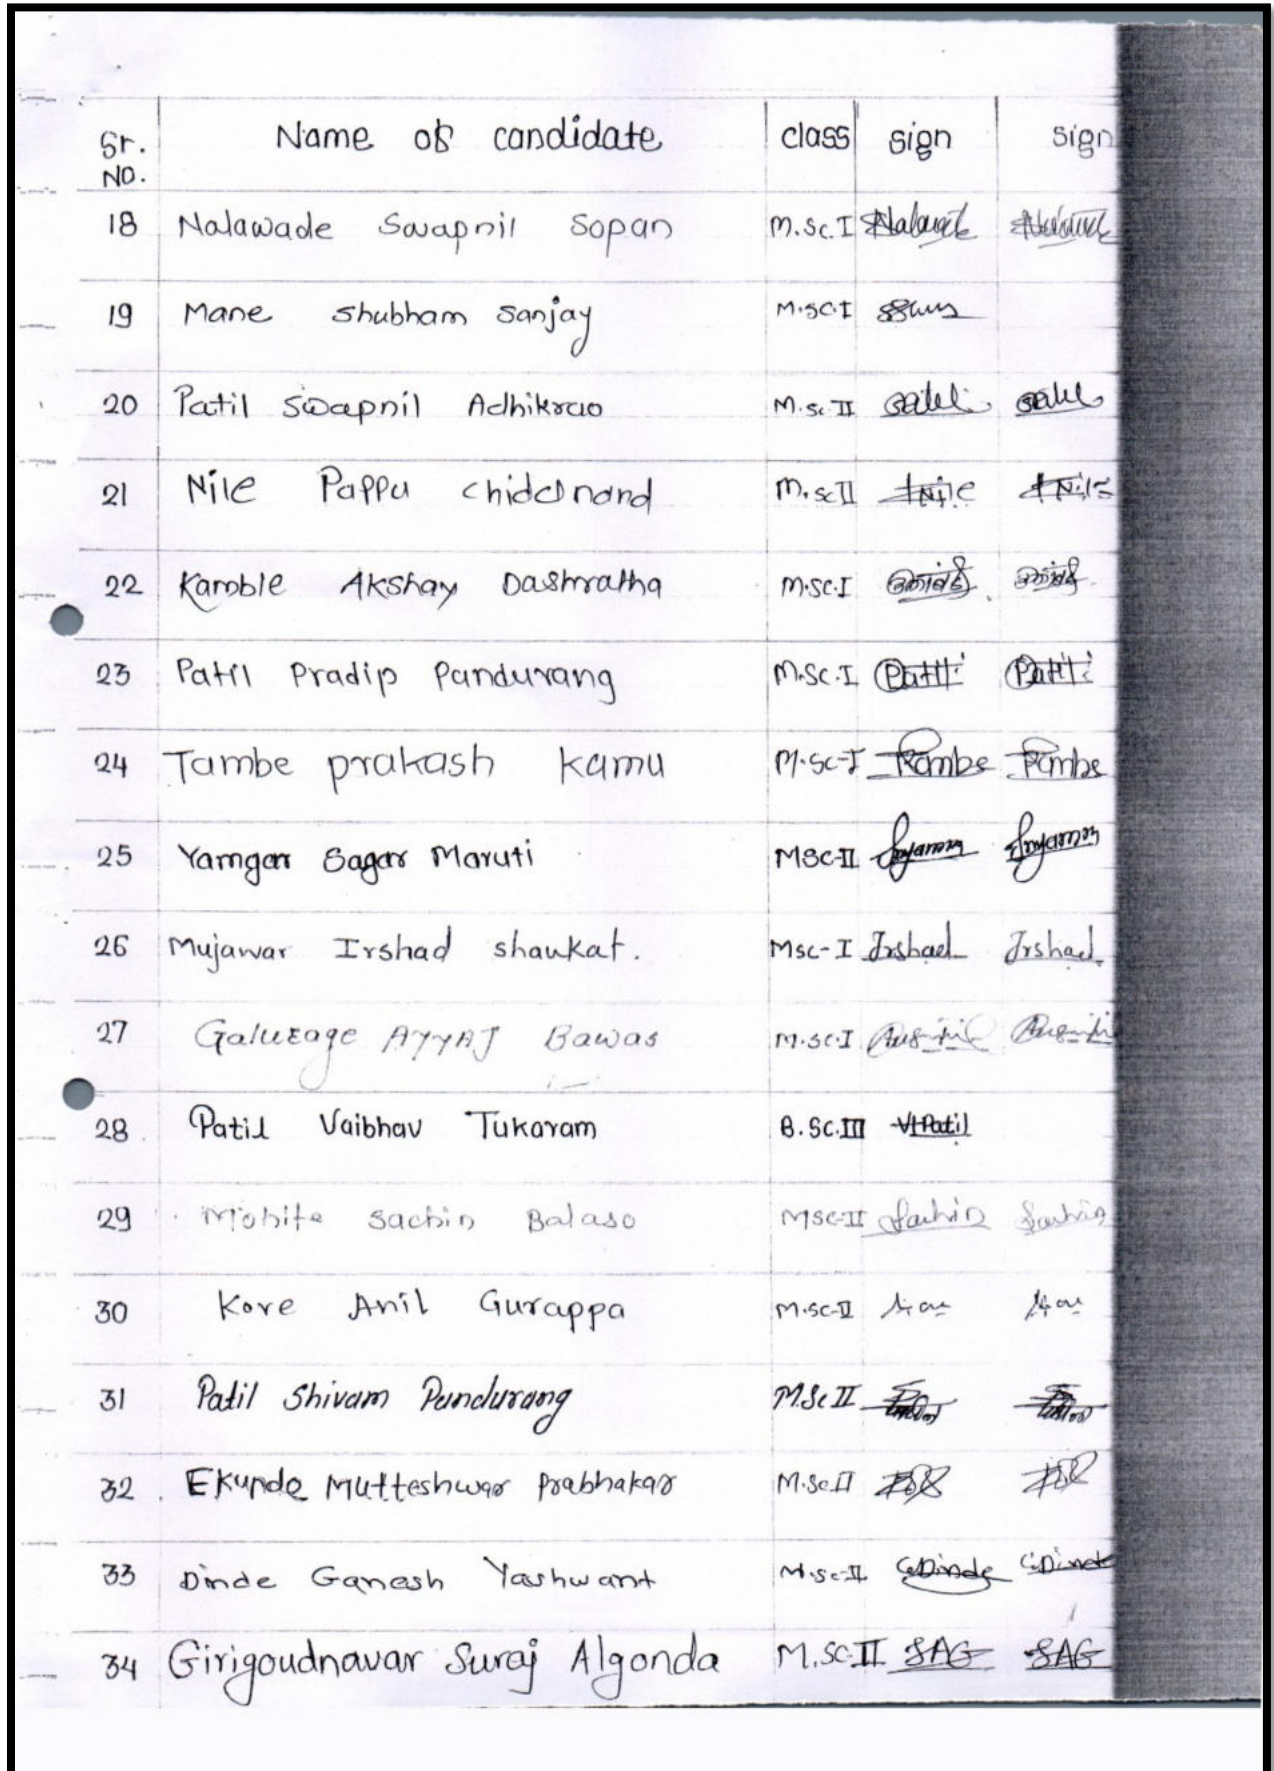 Sr. No. Name of candidate class sign sign
18 Nalawade Swapnil Sopan M.Sc.I Nalawade Nalawade
19 Mane Shubham Sanjay M.SC.I
20 Patil Swapnil Adhikrao M.sc.II Patil Patil
21 Nile Pappu Chidanand M.sc II Nile Nile
22 Kamble Akshay Dashratha M.SC.I कांबळे कांबळे
23 Patil Pradip Pandurang M.Sc.I Patil Patil
24 Tambe prakash kamu M.Sc-I Tambe Tambe
25 Yamgar Sagar Maruti MSC-II
26 Mujawar Irshad shaukat. Msc-I Irshad Irshad
27 AYYAJ Bawas M.SC.I
28 Patil Vaibhav Tukaram B.SC.III VTPatil
29 Mohite Sachin Balaso MSC-II Sachin Sachin
30 Kore Anil Gurappa M.SC-II
31 Patil Shivam Pandurang M.Sc II
32 Ekunde Mutteshwar Prabhakar M.Sc.II
33 Dinde Ganesh Yashwant M.sc-II GDinde GDinde
34 Girigoudnavar Suraj Algonda M.SC-II SAG SAG